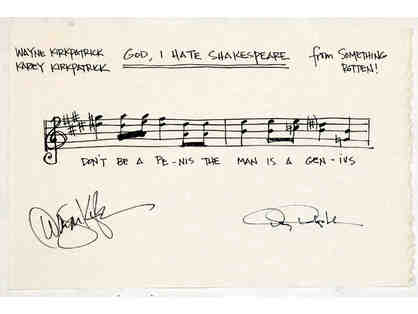 WAYNE KIRKPATRICK
KAREY KIRKPATRICK
GOD, I HATE SHAKESPEARE
from SOMETHING
ROTTEN!
DON'T BE A PE-NIS THE MAN IS A GEN-IUS